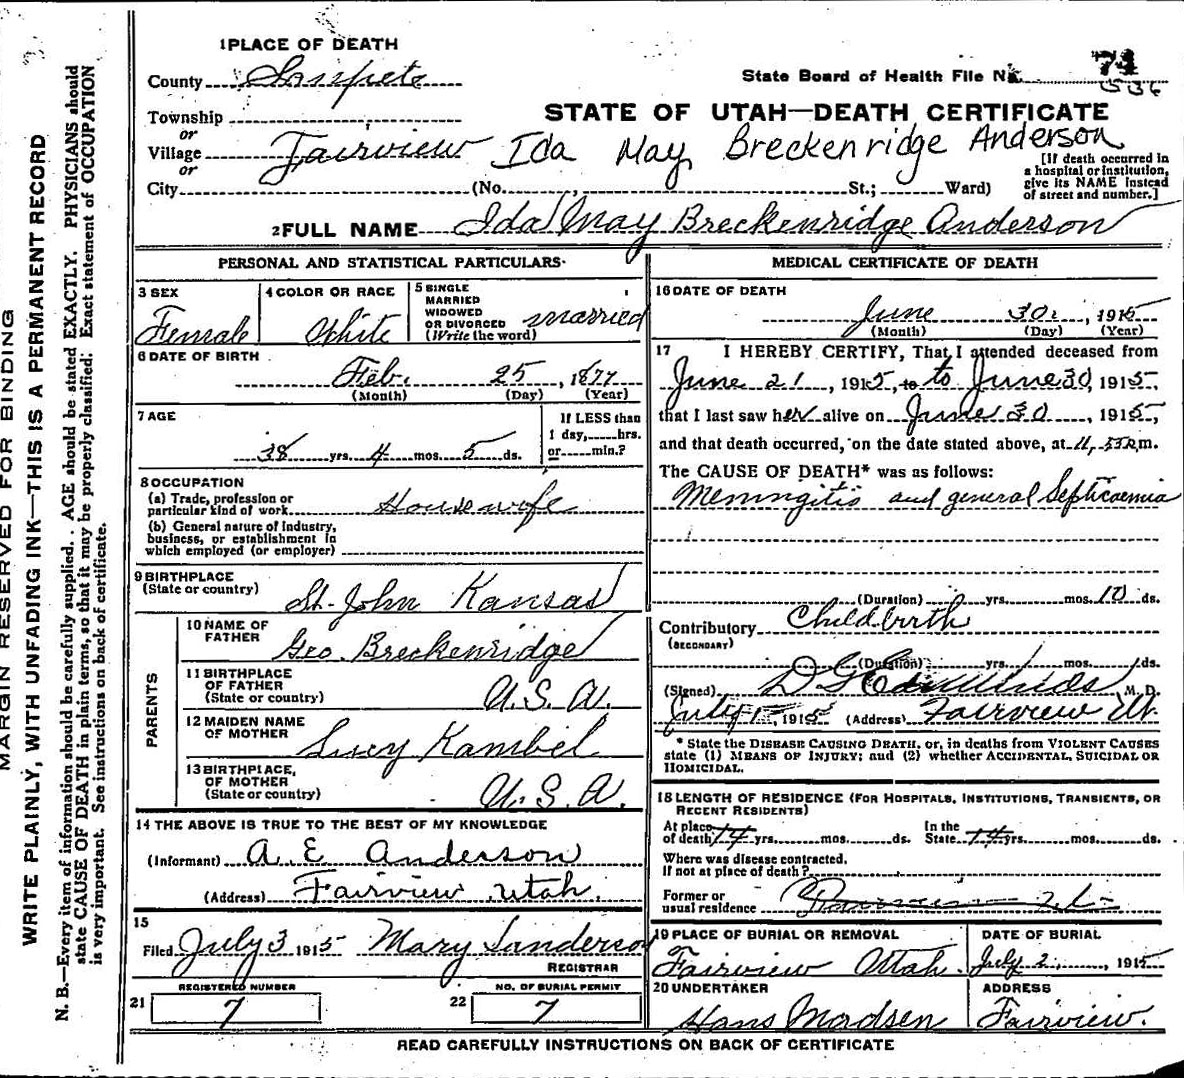 MARGIN RESERVED FOR BINDING
WRITE PLAINLY, WITH UNFADING INK—THIS IS A PERMANENT RECORD
N. B.—Every item of information should be carefully supplied. AGE should be stated EXACTLY. PHYSICIANS should
state CAUSE OF DEATH in plain terms, so that it may be properly classified. Exact statement of OCCUPATION
is very important. See instructions on back of certificate.
1 PLACE OF DEATH
County Sanpete
State Board of Health File No. 71
536
STATE OF UTAH—DEATH CERTIFICATE
Township
or
Village Fairview Ida May Breckenridge Anderson
or
City (No. , St.; Ward)
[If death occurred in
a hospital or institution,
give its NAME instead
of street and number.]
2 FULL NAME Ida May Breckenridge Anderson
PERSONAL AND STATISTICAL PARTICULARS
3 SEX
Female
4 COLOR OR RACE
White
5 SINGLE
MARRIED
WIDOWED
OR DIVORCED
(Write the word)
married
6 DATE OF BIRTH
Feb. 25, 1877
(Month) (Day) (Year)
7 AGE
38 yrs. 4 mos. 5 ds.
If LESS than
1 day, hrs.
or min.?
8 OCCUPATION
(a) Trade, profession or
particular kind of work Housewife
(b) General nature of industry,
business, or establishment in
which employed (or employer)
9 BIRTHPLACE
(State or country)
St. John Kansas
PARENTS
10 NAME OF
FATHER
Geo. Breckenridge
11 BIRTHPLACE
OF FATHER
(State or country)
U. S. A.
12 MAIDEN NAME
OF MOTHER
Lucy Kambel
13 BIRTHPLACE,
OF MOTHER
(State or country)
U. S. A.
14 THE ABOVE IS TRUE TO THE BEST OF MY KNOWLEDGE
(Informant) A E Anderson
(Address) Fairview, Utah.
15
Filed July 3 1915 Mary Sanderson
REGISTRAR
REGISTERED NUMBER
21 7
NO. OF BURIAL PERMIT
22 7
MEDICAL CERTIFICATE OF DEATH
16 DATE OF DEATH
June 30, 1915
(Month) (Day) (Year)
17 I HEREBY CERTIFY, That I attended deceased from
June 21, 1915, to to June 30, 1915,
that I last saw her alive on June 30, 1915,
and that death occurred, on the date stated above, at 11, 55 m.
The CAUSE OF DEATH* was as follows:
Meningitis and general Septicaemia
(Duration) yrs. mos. 10 ds.
Contributory Childbirth
(SECONDARY)
(Duration) yrs. mos. 1 ds.
(Signed) D G Edmunds M. D.
July 1, 1915 (Address) Fairview Ut.
* State the DISEASE CAUSING DEATH, or, in deaths from VIOLENT CAUSES
state (1) MEANS OF INJURY; and (2) whether ACCIDENTAL, SUICIDAL OR
HOMICIDAL.
18 LENGTH OF RESIDENCE (FOR HOSPITALS, INSTITUTIONS, TRANSIENTS, OR
RECENT RESIDENTS)
At place
of death 14 yrs. mos. ds.
In the
State 14 yrs. mos. ds.
Where was disease contracted.
If not at place of death?
Former or
usual residence
19 PLACE OF BURIAL OR REMOVAL
Fairview Utah.
DATE OF BURIAL
July 2, 1915
20 UNDERTAKER
Hans Madsen
ADDRESS
Fairview.
READ CAREFULLY INSTRUCTIONS ON BACK OF CERTIFICATE